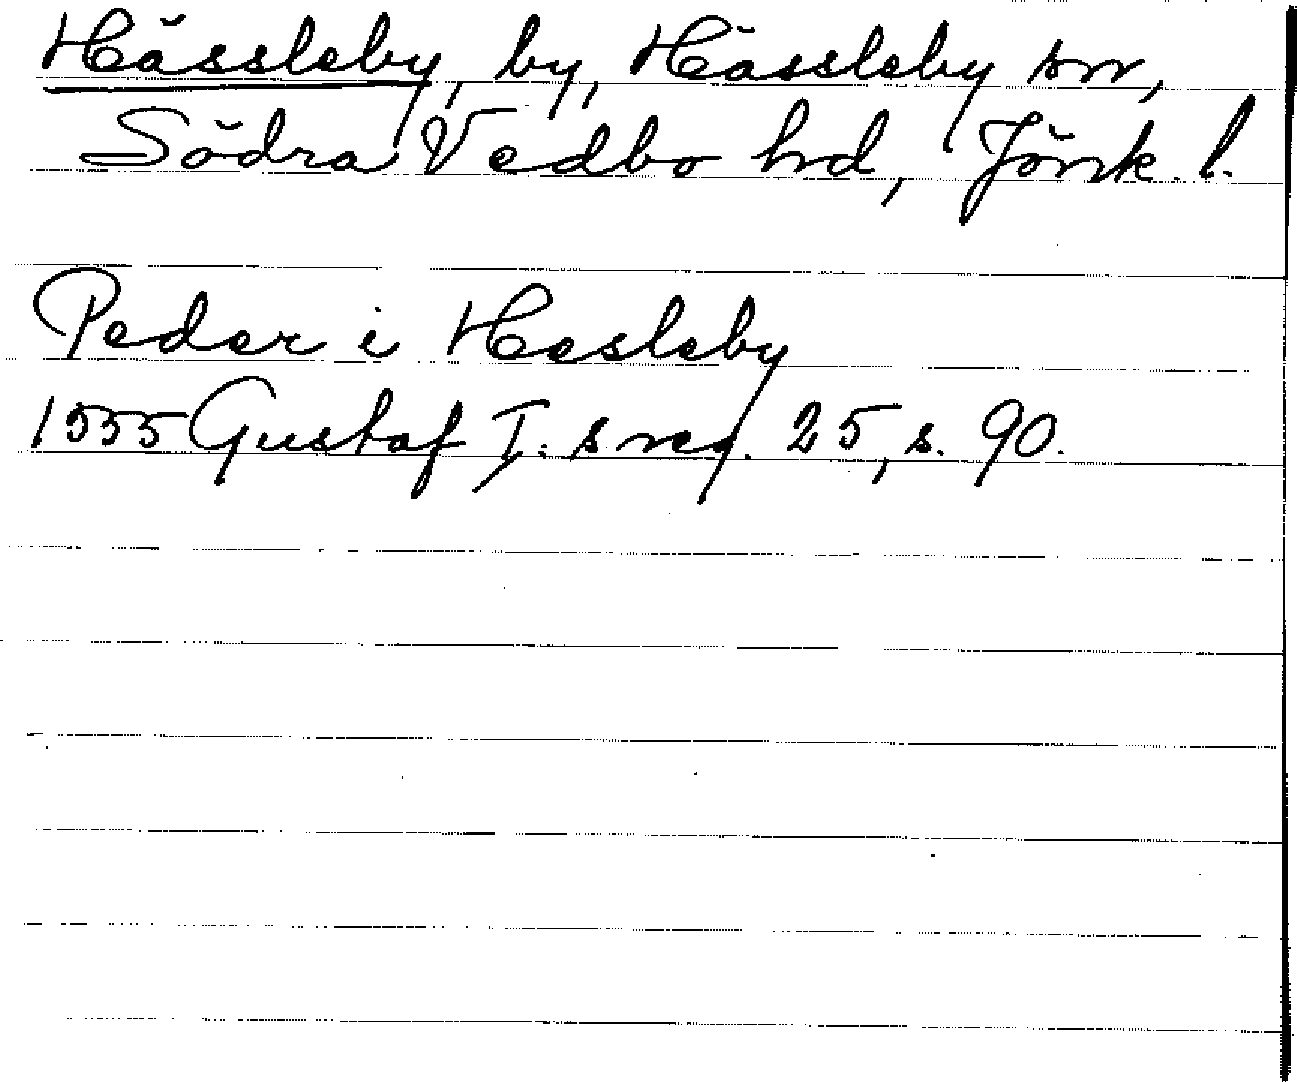 Hässleby, by, Hässleby sn,
Södra Vedbo hd, Jönk. l.
Peder i Hesleby
1555 Gustaf I:s reg. 25, s. 90.